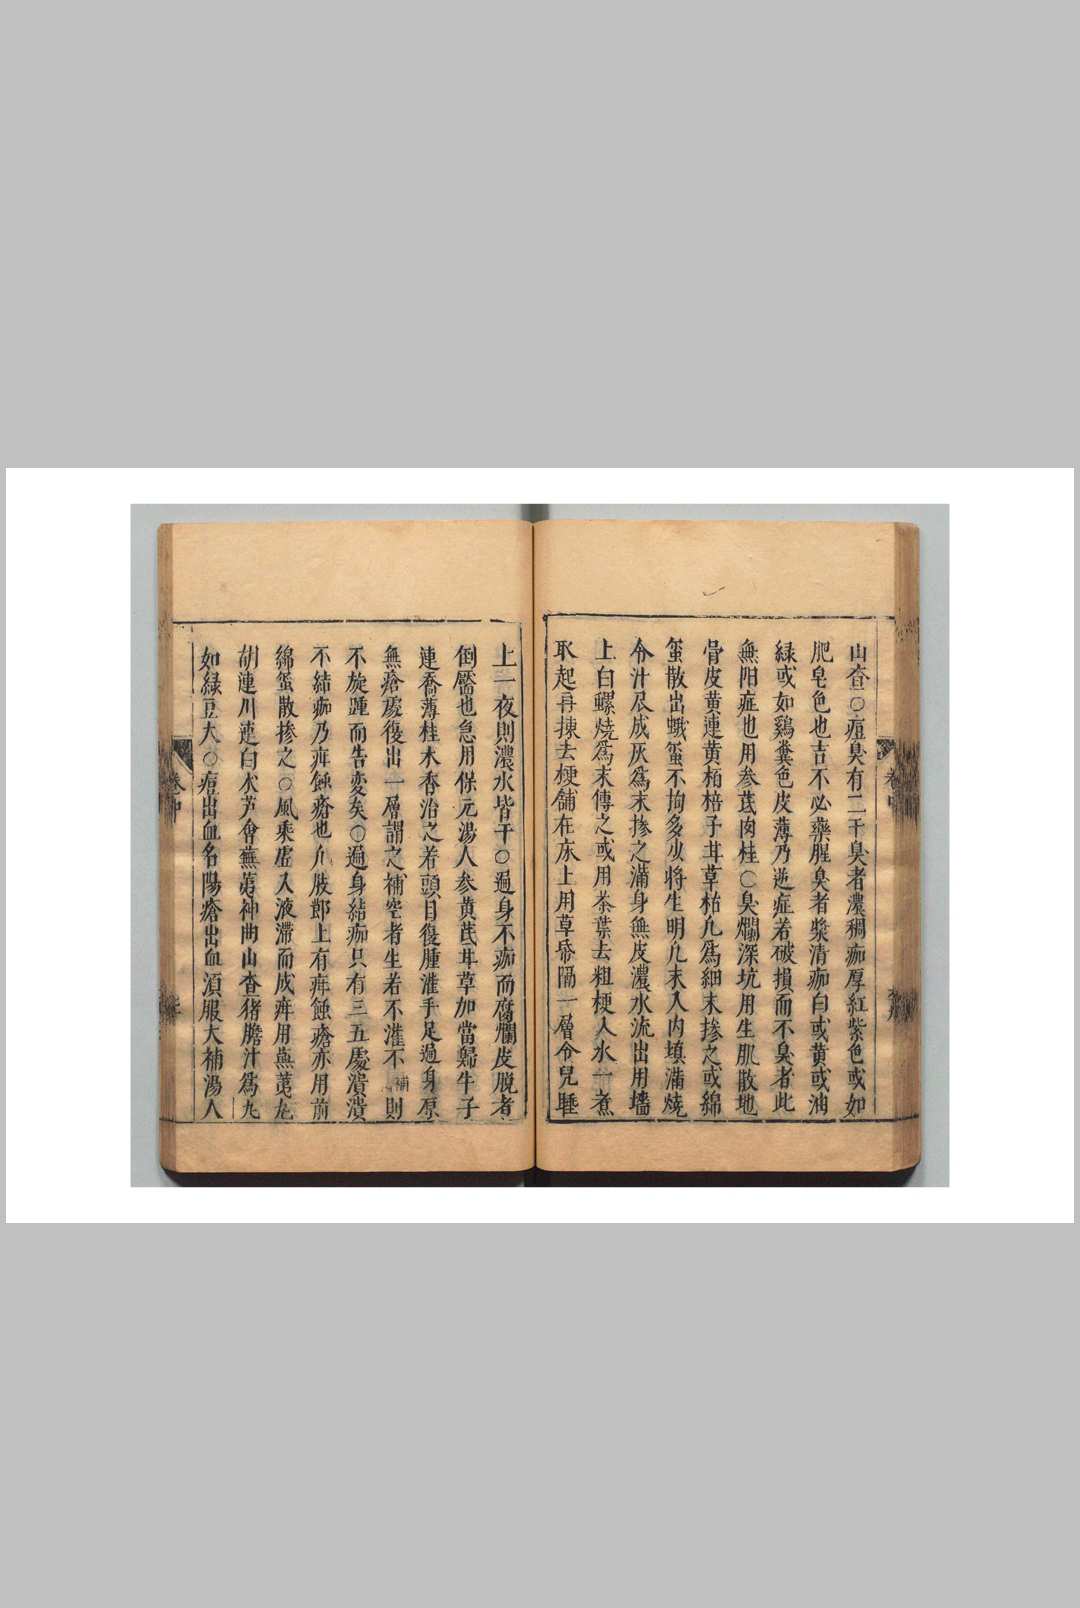 山查○痘臭有二干臭者濃稠痂厚紅紫色或如
肥皂色也吉不必藥腥臭者漿清痂白或黃或油
緑或如鷄糞色皮薄乃逆症若破損而不臭者此
無陽症也用参芪肉桂○臭爛深坑用生肌散地
骨皮黄連黄栢棓子甘草枯凡爲細末摻之或綿
蛋散出蛾蛋不拘多少将生明凡末入内填滿燒
令汁尽成灰爲末摻之滿身無皮濃水流出用墻
上白螺燒爲末傳之或用茶葉去粗梗入水一煮
取起再揀去梗舖在床上用草帋隔一層令兒睡
上一夜則濃水皆干○遍身不痂而腐爛皮脱者
倒靨也急用保元湯人参黄芪甘草加當歸牛子
連喬薄桂木香治之若頭目復腫灌手足過身原
無瘡處復出一層謂之補空者生若不灌不補則
不旋踵而告变矣○遍身結痂只有三五處潰潰
不結痂乃疳蝕瘡也凢肢郎上有疳蝕瘡亦用前
綿蛋散摻之○風乘虛入液滯而成疳用蕪荑
胡連川連白水芦會蕪荑神曲山查猪膽汁爲丸
如緑豆大○痘出血名陽瘡出血湏服大補湯人
卷中
卷中